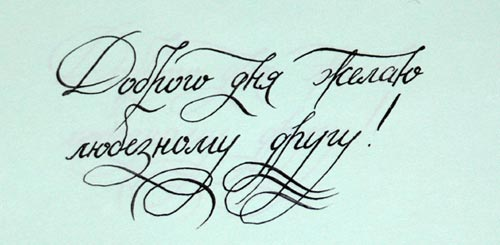 Доброго дня желаю
любезному другу!